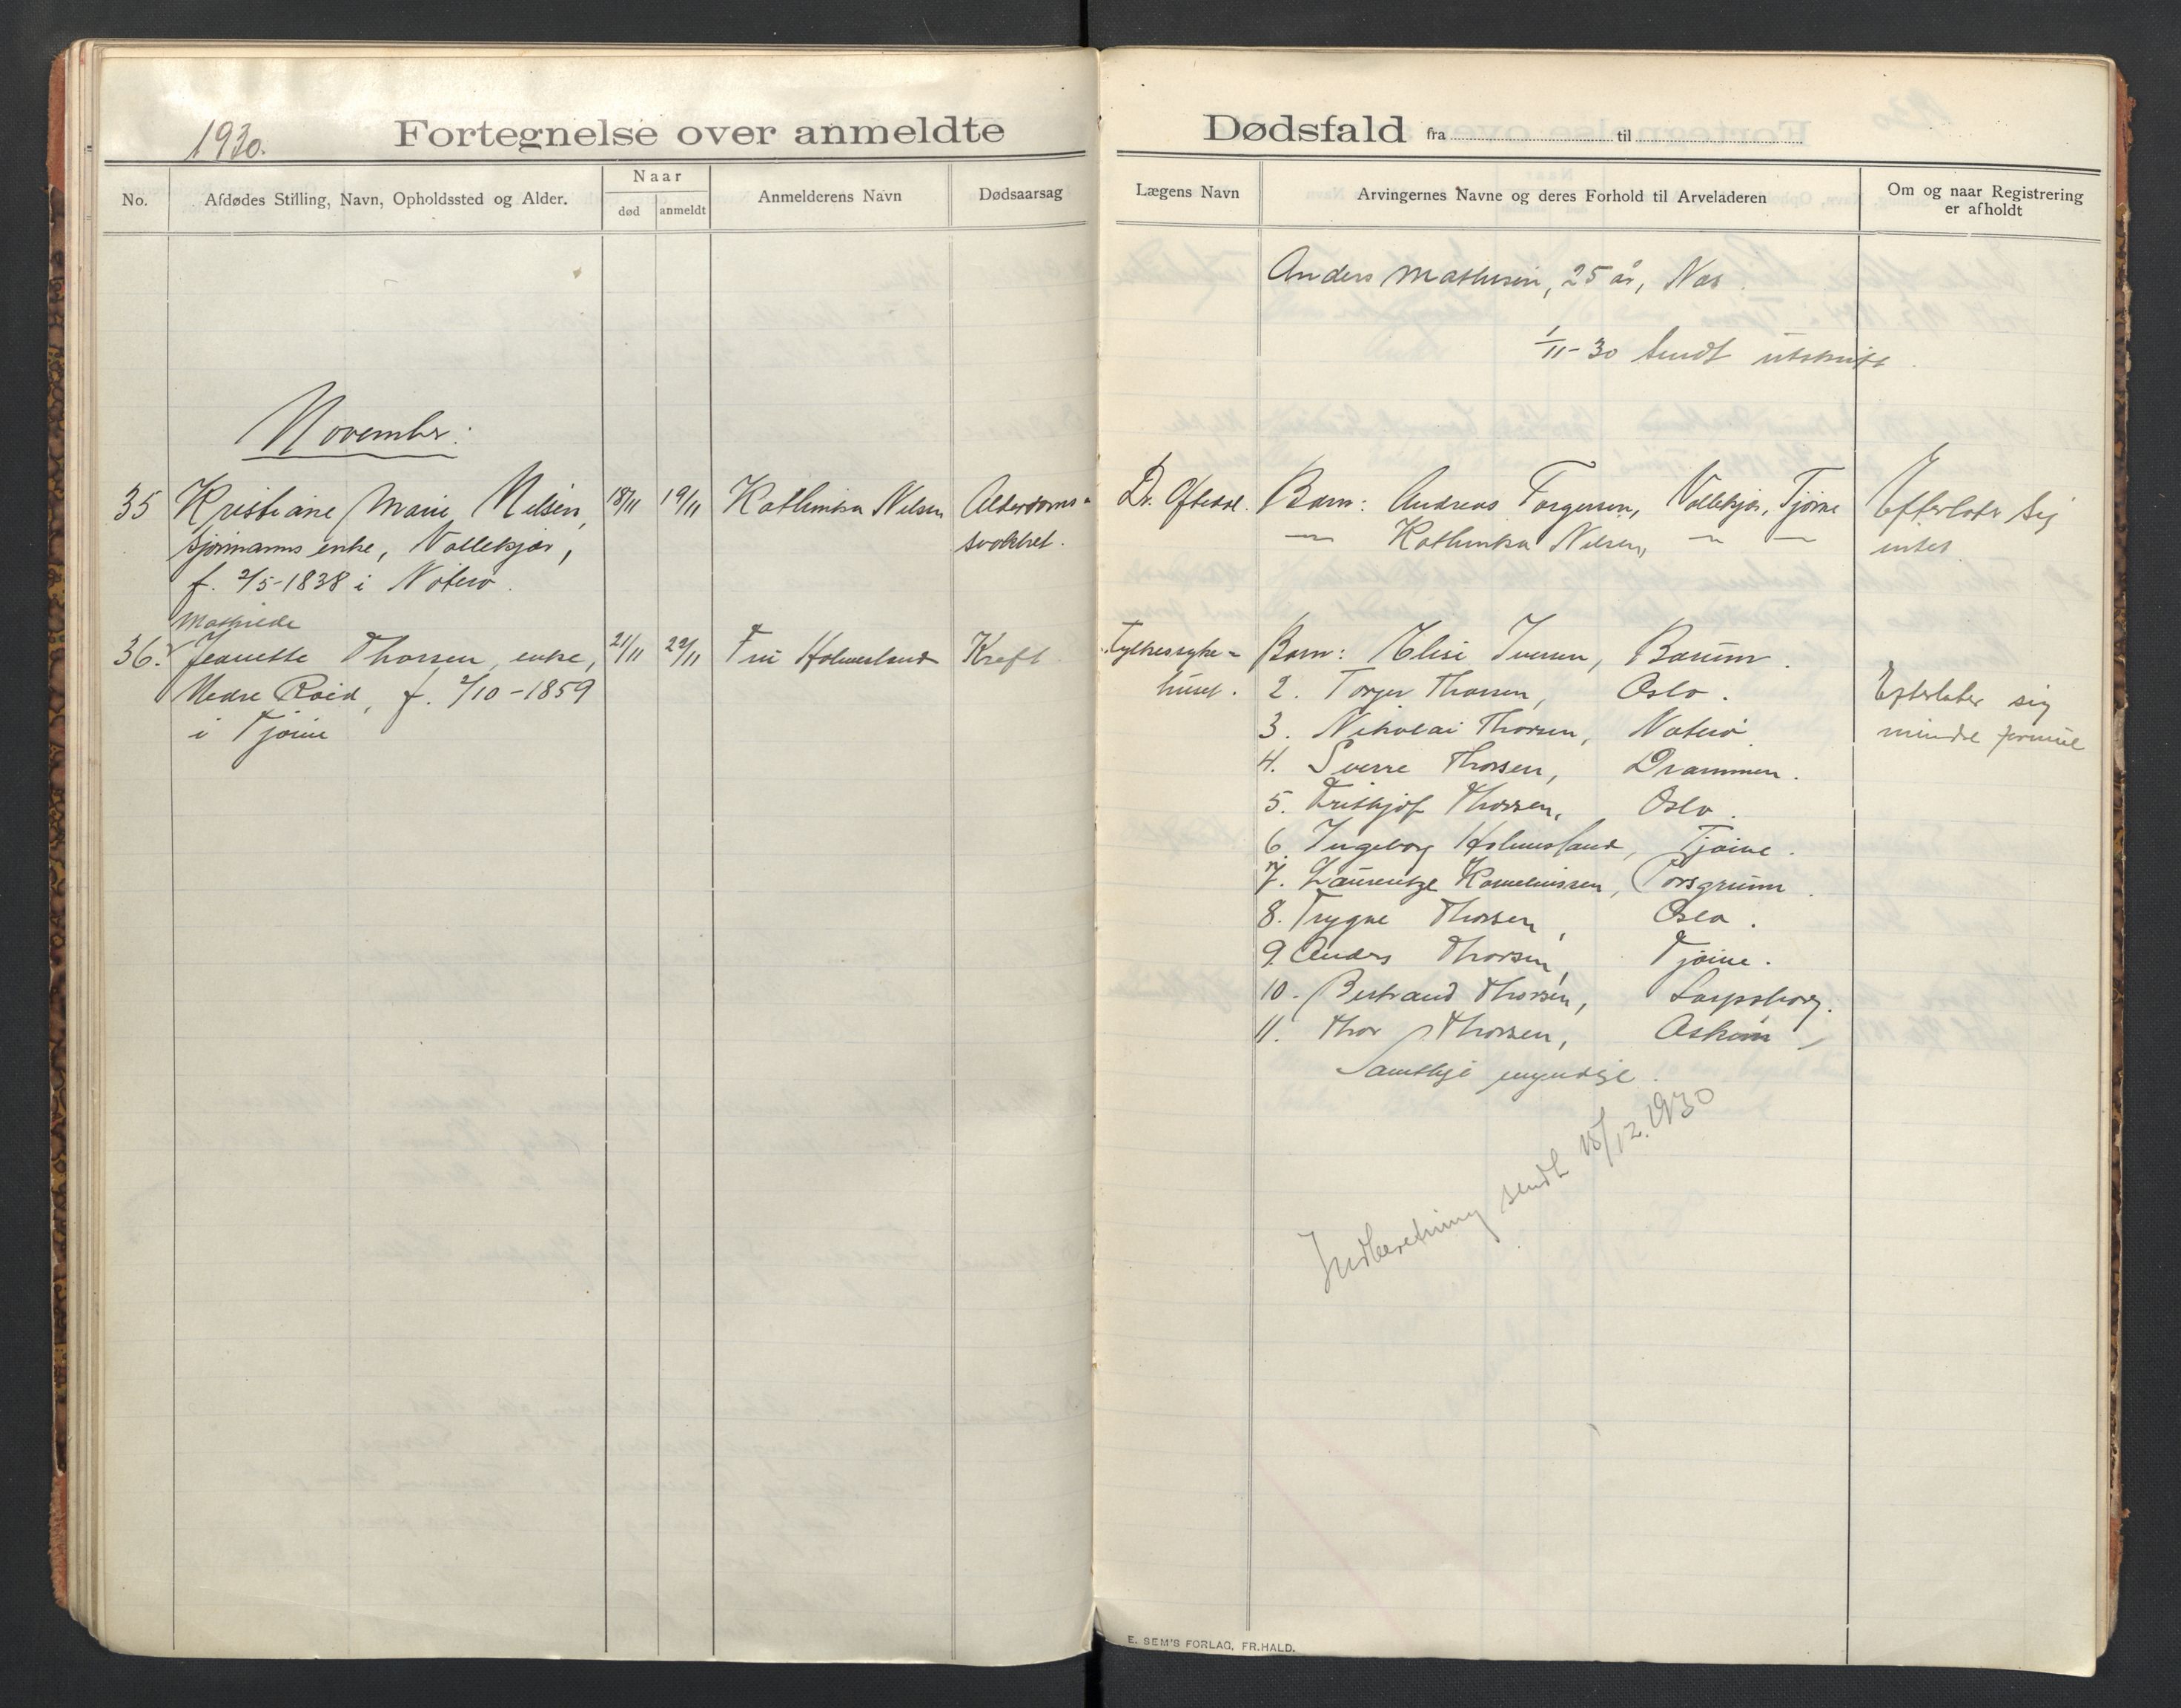 1930.
Fortegnelse over anmeldte
No.
Afdødes Stilling, Navn, Opholdssted og Alder.
Naar
død
anmeldt
Anmelderens Navn
Dødsaarsag
November:
35
Kristiane Marie Nilsen,
sjømanns enke, Vallekjær,
f. 2/5-1838 i Nøterø.
18/11
19/11
Kathinka Nilsen
Alderdoms-
svakhet.
Mathilde
36.
Jeanette Thorsen, enke,
Nedre Røed, f. 2/10-1859
i Tjøme
21/11
22/11
Fru Holmesland
Kreft.
Dødsfald fra til
Lægens Navn
Arvingernes Navne og deres Forhold til Arveladeren
Om og naar Registrering
er afholdt
Anders Mathisen, 25 år, Nes.
1/11-30 Sendt utskrift.
Dr. Oftedal.
Barn: Andreas Torgersen, Vallekjær, Tjøme
— Kathinka Nilsen, — —
Efterlater sig
intet.
Fylkessyke-
huset.
Barn: Elise Iversen, Bærum.
2. Torger Thorsen, Oslo.
3. Nikolai Thorsen, Nøterø
4. Sverre Thorsen, Drammen.
5. Frithjof Thorsen, Oslo.
6. Ingeborg Holmesland, Tjøme.
7. Laurentze Korneliussen, Porsgrunn.
8. Trygve Thorsen, Oslo.
9. Anders Thorsen, Tjøme.
10. Bertrand Thorsen, Sarpsborg.
11. Thor Thorsen, Askim
Samtlige myndige.
Efterlater sig
mindre formue
Indberetning sendt 15/12.1930
E. SEM'S FORLAG, FR.HALD.